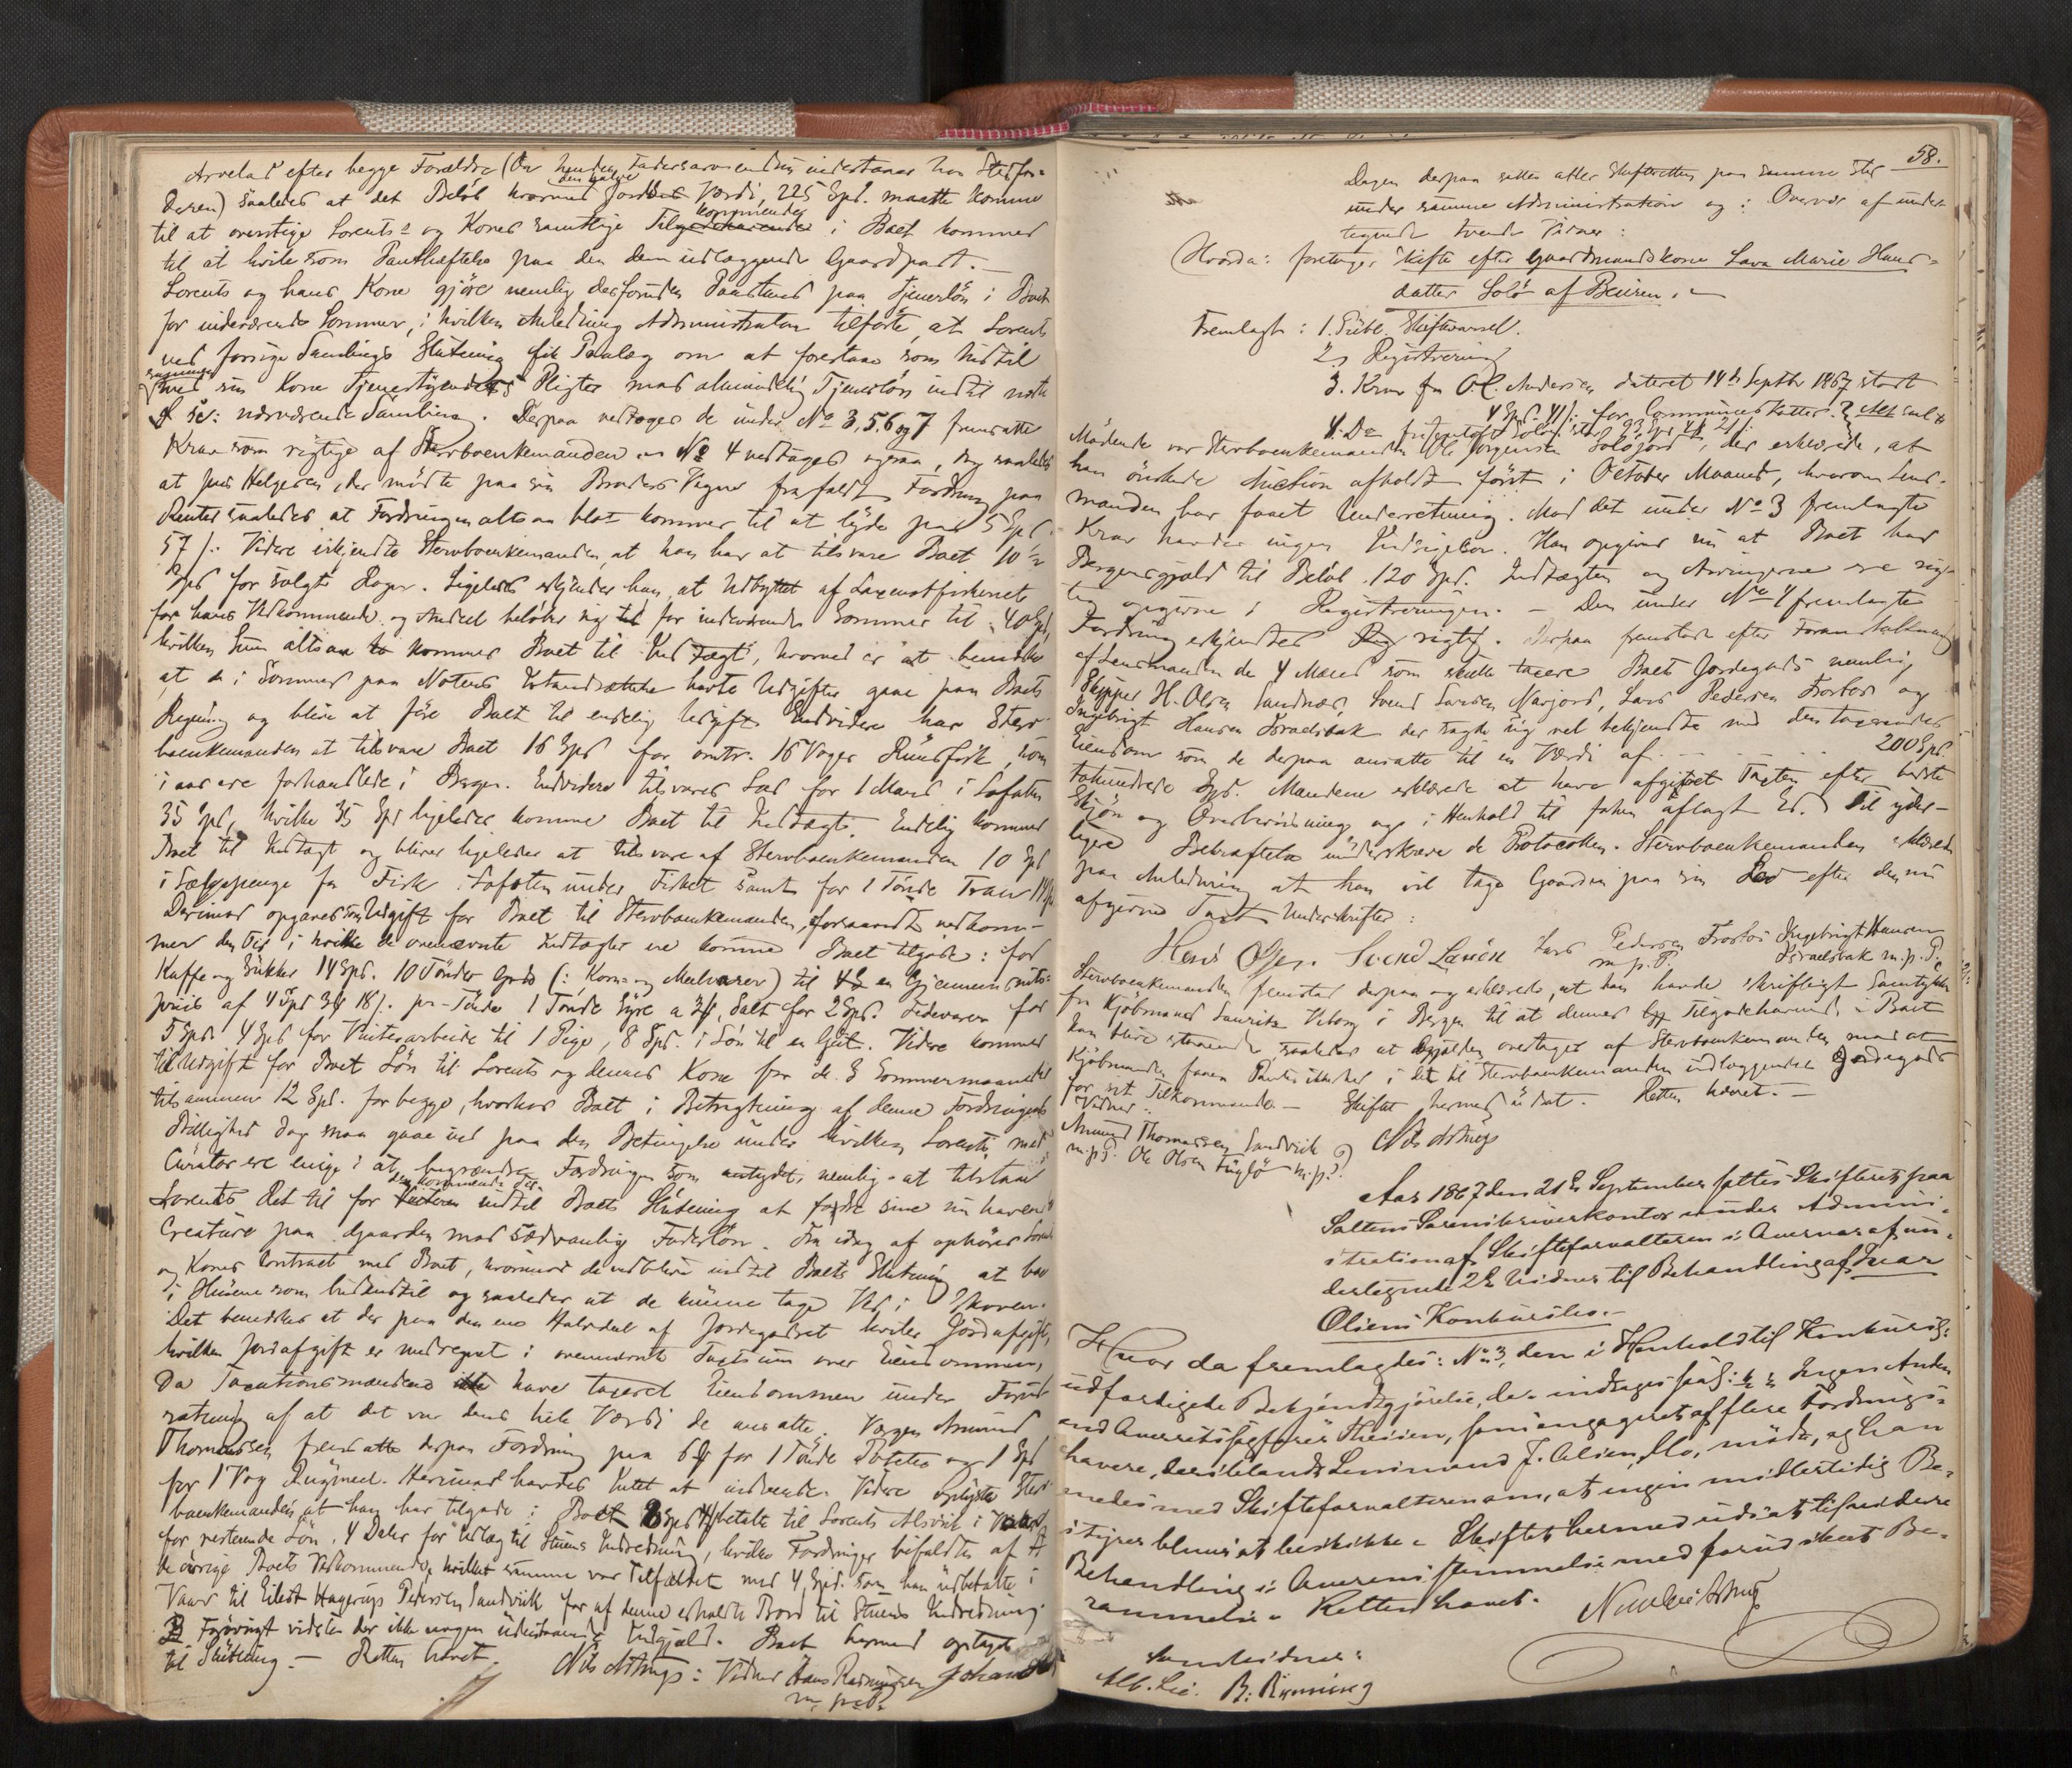 Arvelod efter begge Forældre (Da hendes Fadersarv endnu indestaaer hos Stedfa-
deren) saaledes at det Beløb hvormed Jordens den halve Værdi, 225 Spd. maatte komme
til at overstige Lorents's og Kones samtlige Tilgodehavende kommende i Boet kommer
til at hvile som Panthæftelse paa den dem udlæggende Gaardpart. –
Lorents og hans Kone gjøre nemlig desforuden Paastand paa Tjenerløn i Boet
for indeværende Sommer, i hvilken Anledning Administrator tilførte, at Lorents
ved forrige Samlings Slutning fik Paalæg om at forestaae som hidtil
sammen med sin Kone Tjenestyendes Pligter mod almindelig Tjenerløn indtil næste
D se: nærværende Samling. Derpaa vedtoges de under No 3, 5, 6 og 7 fremsatte
Krav som rigtige af Stervboenkemanden. No 4 vedtages ogsaa, dog saaledes
at Jens Helgesen, der mødte paa sin Broders Vegne frafaldt Fordring paa
Renter saaledes at Fordringen altsaa blot kommer til at lyde paa 5 Spd.
57 s. Videre erkjendte Stervboenkemanden, at han har at tilsvare Boet 10½
Spd for solgte Roger. Ligeledes erkjender han at Udbyttet af Laxenotfiskeriet
for hans Vedkommende og Andeel beløber sig til for indeværende Sommer til 40 Spd,
hvilken Sum altsaa kommer Boet til Indtægt, hvorved er at bemærke
at de i Sommer paa Notens Istandsættelse havte Udgifter gaae paa Boets
Regning og blive at føre Boet til endelig Udgift. Endvidere har Sterv-
boenkemanden at tilsvare Boet 16 Spd for omtr. 16 Voger Rundfisk, som
i aar ere forhandlede i Bergen. Endvidere tilsvares Lod for 1 Mand i Lofoten
35 Spd, hvilke 35 Spd ligeledes komme Boet til Indtægt. Endelig kommer
Boet til Indtægt og bliver ligeledes at tilsvare af Stervboenkemanden 10 Spd
i Salgspenge for Fisk i Lofoten under Fisket samt for 1 Tønde Tran 14 Spd
Derimod opgaves som Udgift for Boet til Stervboenkemanden, forsaavidt vedkom-
mer den Tid i hvilke de ovennævnte Indtægter ere komne Boet tilgode: for
Kaffe og Sukker 14 Spd. 10 Tønder Gods (: Korn- og Meelvarer) til en Gjennemsnits-
priis af 4 Spd 3 ₰ 18 s. pr Tønde 1 Tønde Syre a 3 ₰, Salt for 2 Spd. Fedevarer for
5 Spd. 4 Spd for Vinterarbeide til 1 Pige, 8 Spd. i Løn til en Gut. Videre kommer
til Udgift for Boet Løn til Lorents og dennes Kone for de 3 Sommermaaneder
tilsammen 12 Spd. for begge, hvorhos Boet i Betragtning af denne Fordringens
Billighed dog maa gaae ind paa den Betingelse under hvilken Lorents, med
Curator ere enige i at begrændse Fordringen som antydet, nemlig at tilstaae
Lorents Ret til for den kommende Tid indtil Boets Slutning at fodre sine nu havende
Creature paa Gaarden mod sædvanlig Foderløn. Fra idag af ophører Lorents
og Kones Contract med Boet, hvorimod de vedblive indtil Boets Slutning at boe
i Husene som hidindtil og saaledes at de kunne tage Ved i Skoven.
Det bemærkes at der paa den ene Halvdeel af Jordegodset hviler Jordafgift,
hvilken Jordafgift er medregnet i ovennævnte Taxtsum over Eiendommen,
Da Taxationsmændene have taxeret Eiendommen under Forud
sætning af at det var dens hele Værdi de ansatte. Vergen Amund
Thomassen fremsatte derpaa Fordring paa 6 ₰ for 1 Tønde Poteter og 1 Spd
for 1 Vog Rugmeel. Herimod havdes Intet at indvende. Videre oplyste Sterv-
boenkemanden at han har tilgode i Boet 2 Spd betalt til Lorents Alsvik i
for resterende Løn, 4 Daler for Udlæg til Stuens Indredning, hvilke Fordringer bifaldtes af
de øvrige Boets Vedkommende, hvilket samme var Tilfældet med 4 Spd. som han udbetalte i
Vaar til Eilert Hagerups Pedersen Sandvik for af denne erholdte Bord til Stuens Indredning.
Forøvrigt vidstes der ikke nogen udestaaende Indgjæld. Boet hermed optaget
til Slutning. – Retten hævet. Nils Astrup: Vidner Hans Rasmussen Johan
m. p. P.
58.
Dagen derpaa sattes atter Skifteretten paa samme Sted
under samme Administration og i Overvær af under-
tegnede tvende Vidner:
Hvorda: foretoges Skifte efter Gaardmandskone Lava Marie Hans-
datter Solø af Beiern. –
Fremlagt: 1. Publ. Skiftevarsel.
2, Registrering
3. Krav fra O.C. Andersen dateret 14de Septbr 1867 stort
4 Spd. 41 s. for Communeskatter.
4. Do
Mødende var Stervboenkemanden Ole Jørgensen Soløjord, der erklærede, at
han ønskede Auction afholdt først i October Maaned, hvorom Lens-
manden har faaet Underretning. Mod det under No 3 fremlagte
Krav havdes ingen Indsigelse. Han opgiver nu at Boet har
Bergensgjæld til Beløb 120 Spd. Indtægten og Avlingerne ere rig-
tig opgivne i Registreringen. – Den under No 4 fremlagte
Fordring erkjendtes rigtig. Derpaa fremstod efter Foranstaltning
af Lensmanden de 4 Mænd som skulle taxere Boets Jordegods nemlig
Skipper H. Olsen Sandnæs, Svend Larsen Narjord, Lars Pedersen Trosbos og
Ingebrigt Hansen Israelsbak der sagde sig vel bekjendte med den taxerendes
Eiendom som de derpaa ansatte til en Værdi af . . . . . . 200 Spd
tohundrede Spd. Mændene erklærede at have afgivet Taxten efter bedste
Skjøn og Overbeviisning og i Henhold til forhen aflagt Ed. Til yder-
ligere Bekræftelse underskreve de Protocollen. Stervboenkemanden erklærede
paa Anledning at han vil tage Gaarden paa sin Lod efter den nu
afgivne Taxt. Underskrifter:
Hans Olsen. Svend Larsen Lars Pedersen Trosbos Ingebrigt Hansen
m. p. P. Israelsbak m. p. P.
Stervboenkemanden fremstod derpaa og erklærede, at han havde skriftligt Samtykke
fra Kjøbmand Lauritz Viborg i Bergen til at dennes Tilgodehavende i Boet
kan blive staaende saaledes at Gjælden overtages af Stervboenkemanden mod at
Kjøbmanden faaer Pantesikkerhed i det til Stervboenkemanden udlæggendes Jordegods
for sit Tilkommende. – Skiftet hermed udsat. Retten hævet. –
Vidner:
Amund Thomassen Sandvik Nils Astrup
m.p.P. Ole Olsen Fuglø m.p.P.
Aar 1867 den 21de September sattes Skifteret paa
Saltens Sorenskriverkontor under Admini-
stration af Skifteforvalteren i Overvær af un-
dertegnede 2de Vidner til Behandling af Ivar
Olsens Konkursbo. –
Hvor da fremlagdes: No 3, den i Henhold til Konkursl:
udfærdigede Bekjendtgjørelse, der indtages saal: Ingen Anden
end Overretssagfører Theisen, som engageret af flere Fordrings-
havere, deriblandt Lensmand J. Olsen, Mo, mødte, og han
enedes med Skifteforvalteren om, at ingen midlertidig Be-
styrer blev at beskikke. Skiftet hermed udsat til videre
Behandling i Overensstemmelse med forud skeet Be-
rammelse. Retten hævet. Nils Astrup
Som Vidner:
Alb. Lie. B. Rynning